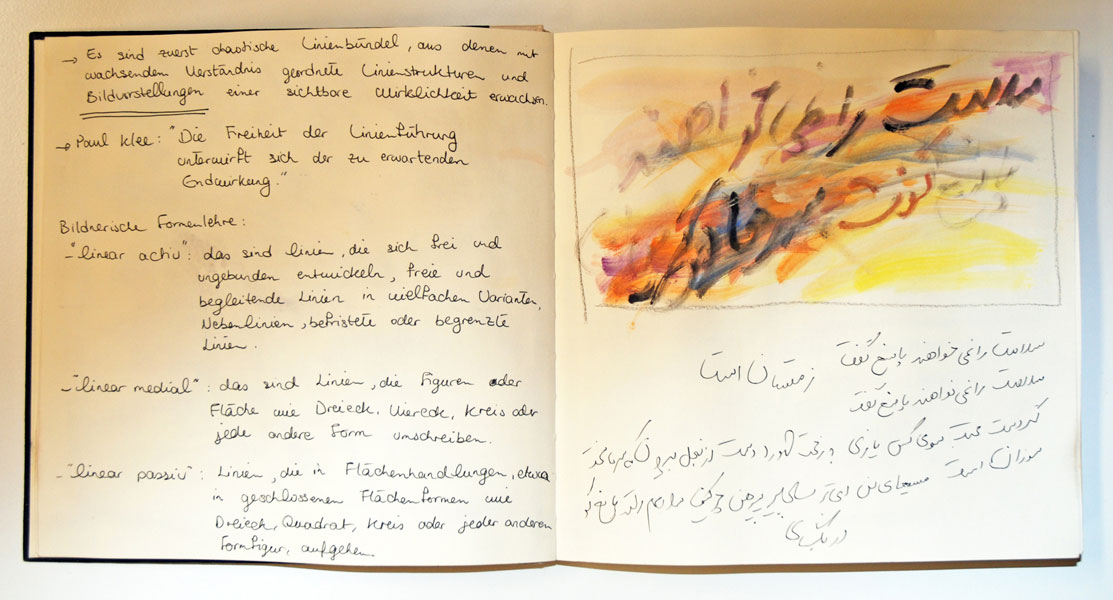 → Es sind zuerst chaotische Linienbündel, aus denen mit
wachsenden Verständnis geordnete Linienstrukturen und
Bildvorstellungen einer sichtbare Wirklichkeit erwachsen.
→ Paul Klee: "Die Freiheit der Linienführung
unterwirft sich der zu erwartenden
Endwirkung."
Bildnerische Formenlehre:
- "linear activ": das sind Linien, die sich frei und
ungebunden entwickeln, freie und
begleitende Linien in vielfachen Varianten,
Nebenlinien, befristete oder begrenzte
Linien.
- "linear medial": das sind Linien, die Figuren oder
Fläche wie Dreieck, Viereck, Kreis oder
jede andere Form umschreiben.
- "linear passiv": Linien, die in Flächenhandlungen, etwa
in geschlossenen Flächenformen wie
Dreieck, Quadrat, Kreis oder jeder anderen
Formfigur, aufgehen.
سلامت را نمی خواهند
سلامت را نمی خواهند پاسخ گفت زمستان است
سلامت را نمی خواهند پاسخ گفت
دست سوی کس یازی دست از بغل بیرون که سرما سخت
سوزان است مسیحای من ای پیر پیرهن سلامم را تو پاسخ گو
در بگشای